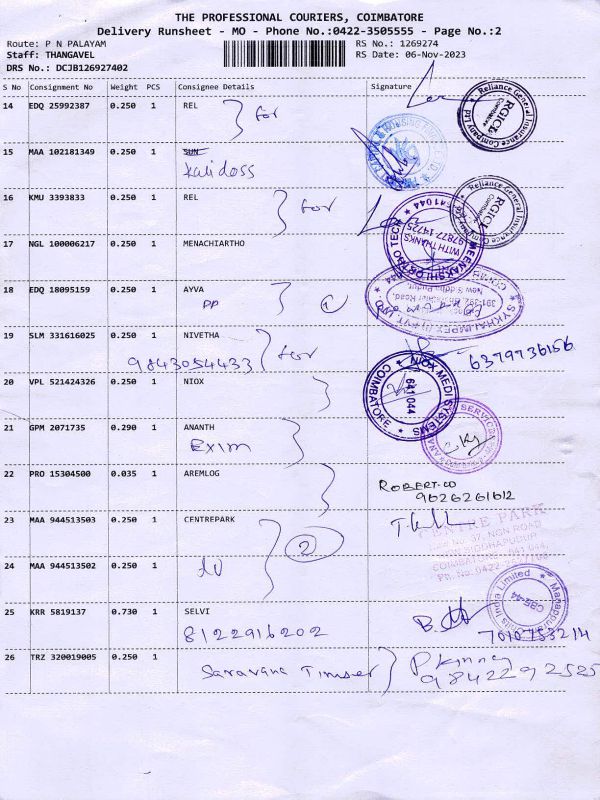 THE PROFESSIONAL COURIERS, COIMBATORE
Delivery Runsheet - MO - Phone No.:0422-3505555 - Page No.:2
Route: P N PALAYAM
RS No.: 1269274
Staff: THANGAVEL
RS Date: 06-Nov-2023
DRS No.: DCJB126927402
S No Consignment No Weight PCS Consignee Details Signature
14 EDQ 25992387 0.250 1 REL
for
Reliance General Insurance Company Ltd
RGICL
Coimbatore
15 MAA 102181349 0.250 1 SUN
Kalidoss
16 KMU 3393833 0.250 1 REL
for
Reliance General Insurance
RGICL
17 NGL 100006217 0.250 1 MENACHIARTHO
MEENAKSHI ORTHO TECH
WITH THANKS
97877 14725
641044
18 EDQ 18095159 0.250 1 AYVA
PP
1
New Siddha Pudur,
19 SLM 331616025 0.250 1 NIVETHA
9843054433
for
6379736156
20 VPL 521424326 0.250 1 NIOX
NIOX MEDI SYSTEMS
641 044
COIMBATORE
21 GPM 2071735 0.290 1 ANANTH
Exim
SERVICES
22 PRO 15304500 0.035 1 AREMLOG
9626261612
23 MAA 944513503 0.250 1 CENTREPARK
2
CENTRE PARK
24 MAA 944513502 0.250 1
25 KRR 5819137 0.730 1 SELVI
8122916202
India Limited
26 TRZ 320019005 0.250 1
Saravana Timber
9842292525